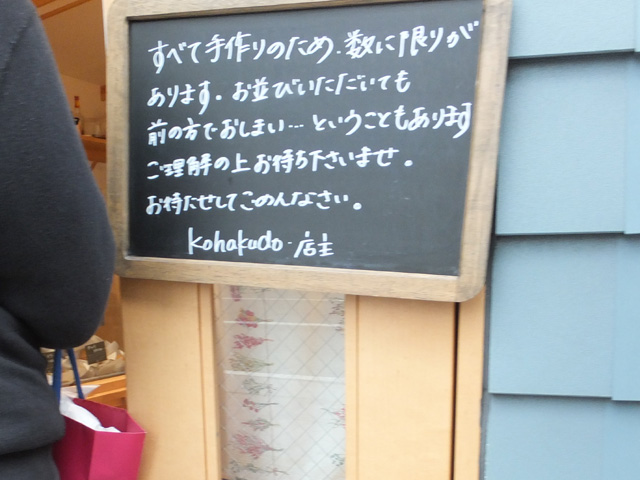 すべて手作りのため、数に限りが
あります。お並びいただいても
前の方でおしまい…ということもあります
ご理解の上お待ち下さいませ。
お待たせしてごめんなさい。
kohakudo・店主